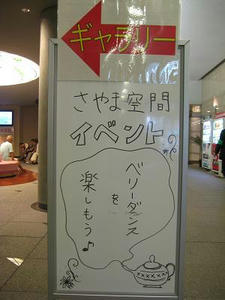 ギャラリー
さやま空間
イベント
ベリーダンス
を
楽しもう♪